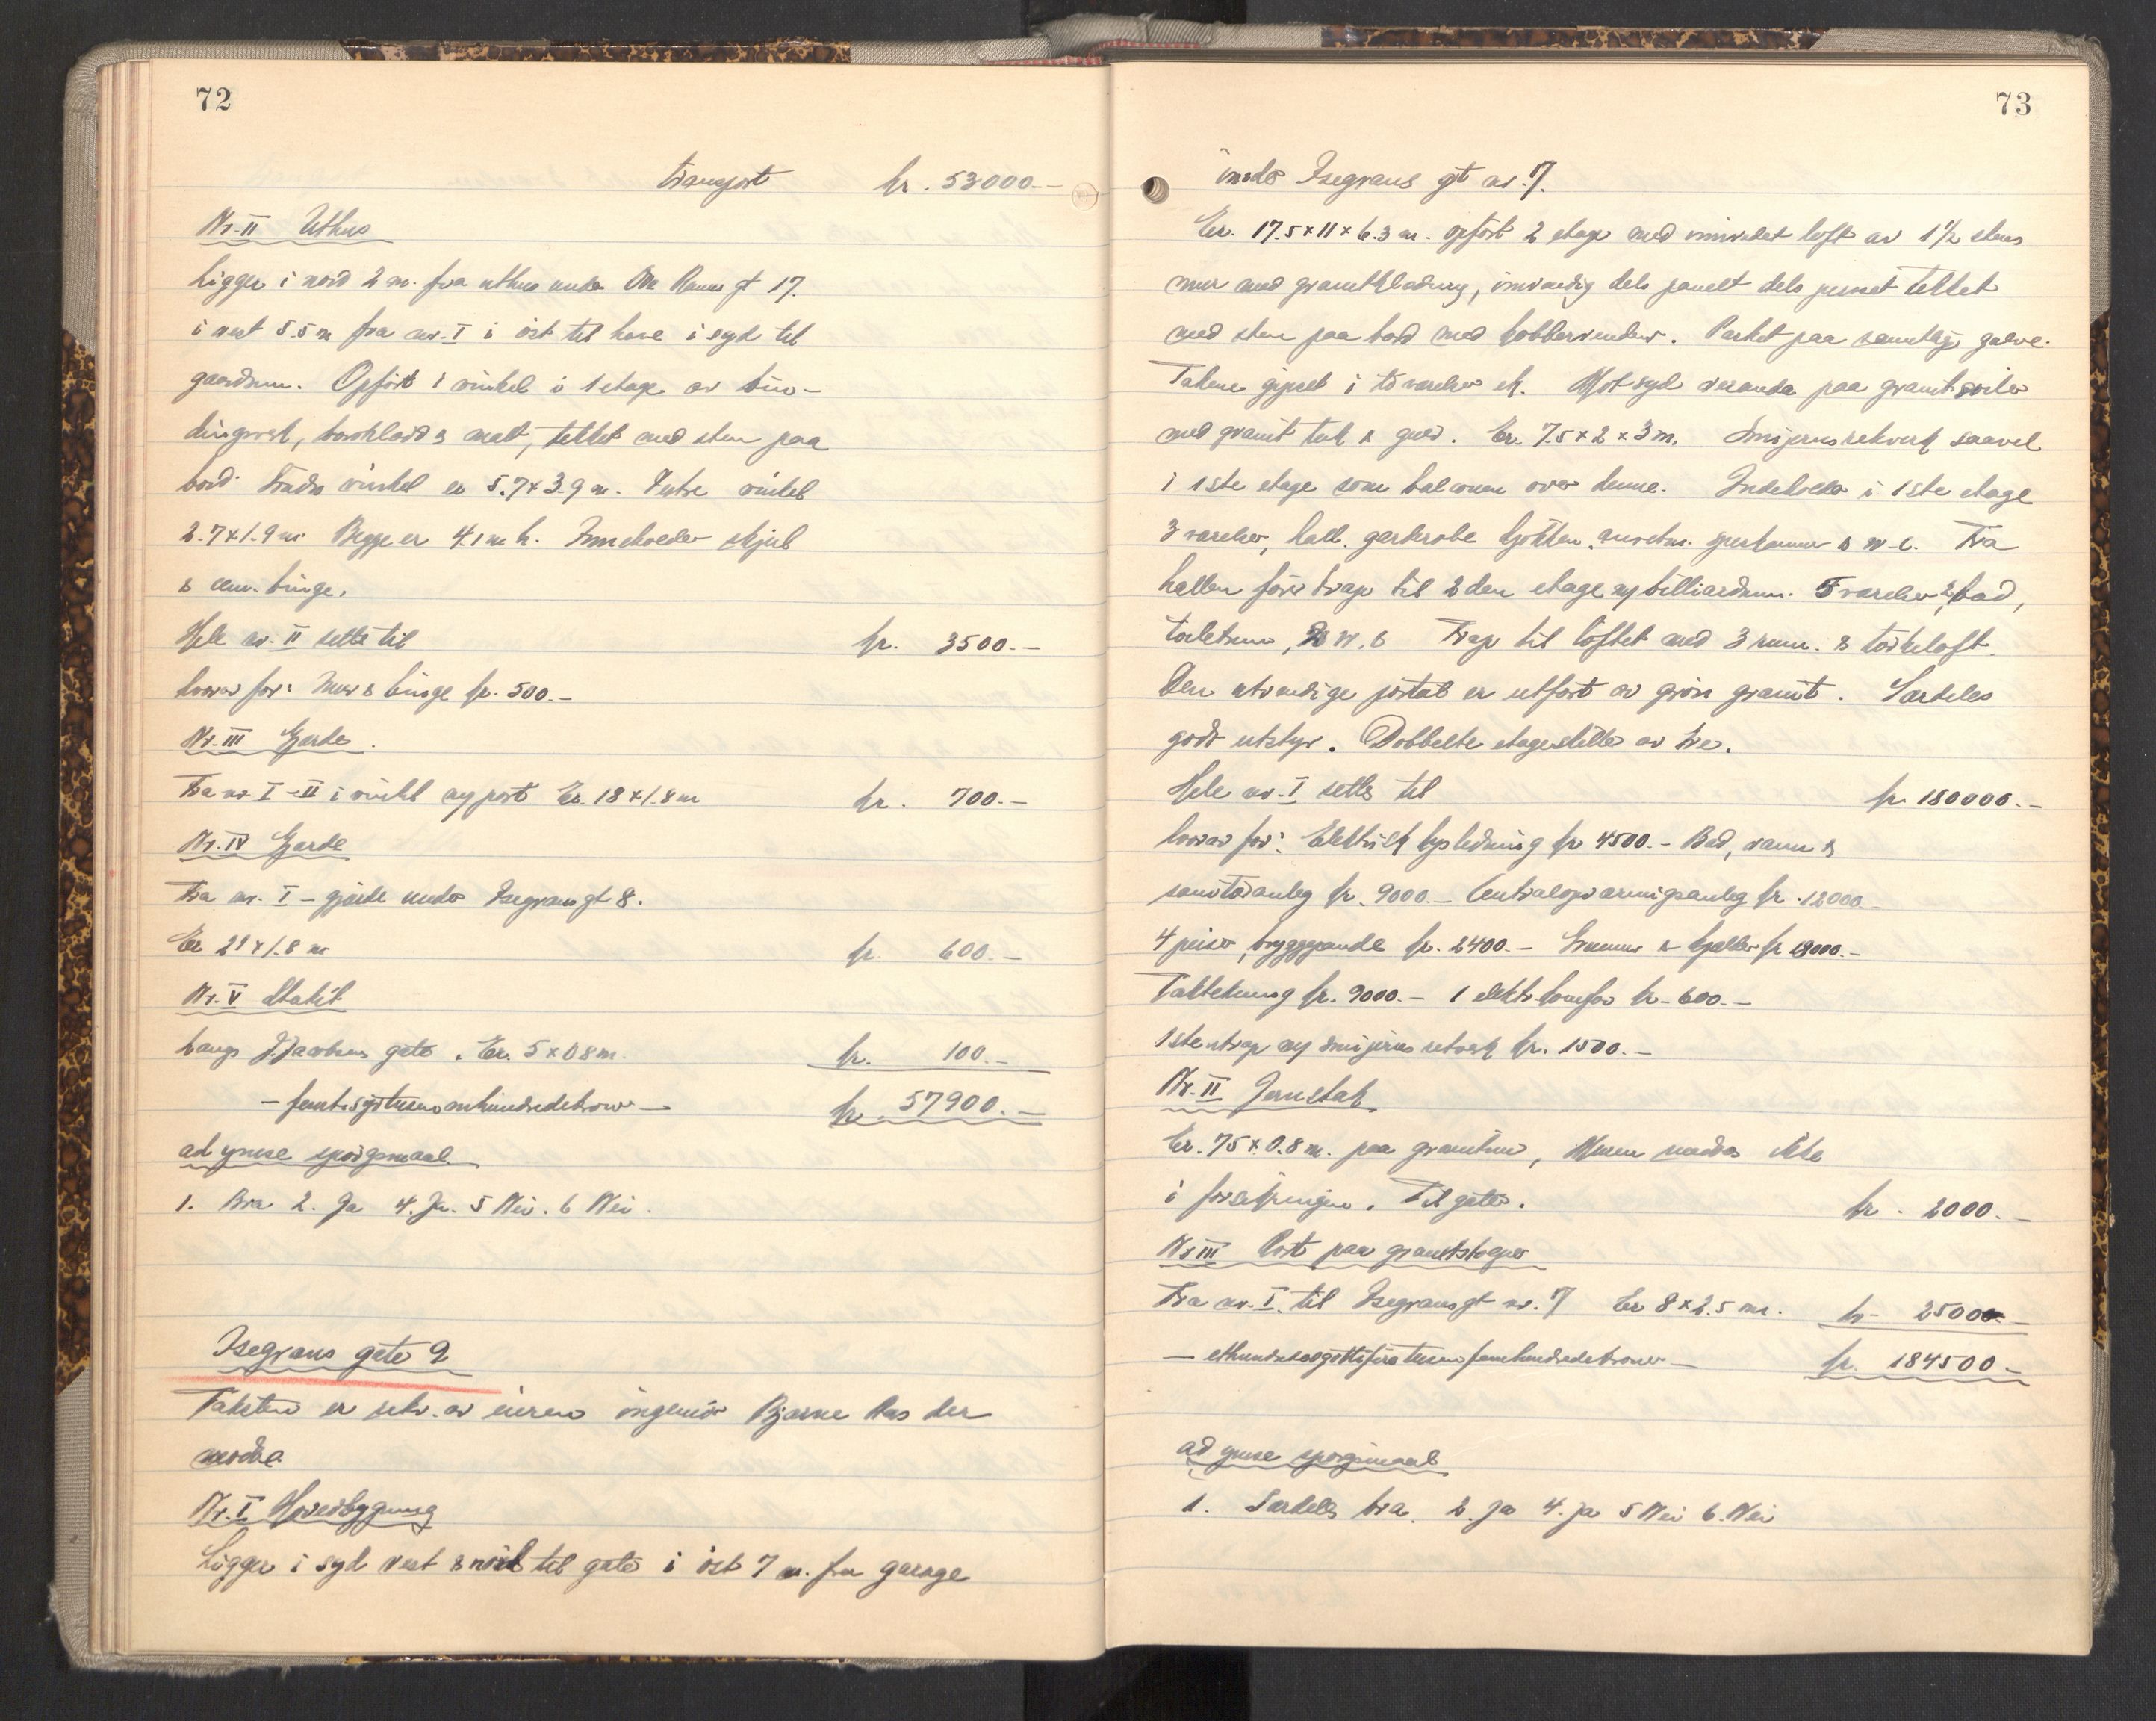 72
transport kr. 53000.-
Nr. II Uthus
Ligger i nord 2 m. fra uthus under Ole Rams gt 17.
i vest 5.5 m fra nr. I i øst til have i syd til
gaardsrum. Opført i vinkel i 1 etage av bin-
dingsverk, bordklædd & malt, tekket med sten paa
bord. Søndre vinkel er 5.7 x 3.9 m. Indre vinkel
2.7 x 1.9 m. Begge er 4.1 m h. Inneholder skjul
& cem. binge.
Hele nr. II settes til kr. 3500.-
hvorav for: Mur & binge kr. 500.-
Nr. III Gjerde.
Fra nr. I - II i vinkel og port Er. 18 x 1.8 m kr. 700.-
Nr. IV Gjerde
Fra nr. I - gjærde under Isegrans gt 8.
Er 21 x 1.8 m kr. 600.-
Nr. V Stakit
Langs J. Jacobsens gate. Er. 5 x 0.8 m. kr. 100.-
- femtisyvtusennihundredekroner - kr. 57900.-
ad gnuse spørgsmaal.
1. Bra 2. Ja 4. Ja. 5 Nei. 6 Nei.
Isegrans gate 9
Taksten er rekv. av eieren ingeniør Bjarne Aas der
møtte
Nr. I Hovedbygning
Ligger i syd vest & nord til gate i øst 7 m. fra garage
73
under Isegrans gt nr. 7.
Er. 17.5 x 11 x 6.3 m. opført 2 etage med innredet loft av 1 1/2 stens
mur med granitklædning, innvendig dels panelt dels pusset tekket
med sten paa bord med kobberrender. Parket paa samtlige gulve.
Takene gipset i to værelser etc. Mot syd veranda paa granit søiler
med granit tak & gulv. Er. 7.5 x 2 x 3 m. Smijernsrekverk saavel
i 1ste etage som balconen over denne. Indeholder i 1ste etage
3 værelser, hall. garderobe kjøkken. anretn. spiskammer & w.c. Fra
hallen fører trap til 2den etage og billiardrum. 5 værelser 2 bad,
toiletrum, & w.c Trap til loftet med 3 rum. & tørkeloft.
Den utvendige portal er utført av grøn granit. Særdeles
godt utstyr. Dobbelte etageskiller av tre.
Hele nr. I settes til kr 180000.-
hvorav for: Elektrisk lysledning kr 4500.- Bad, vann &
sanitæranleg kr. 9000.- Centralopvarmingsanleg kr. 12000.-
4 peiser, bryggepande kr. 2400.- Grunmur & kjeller kr 18000.-
Taktekning kr. 9000.- 1 elektr. komfyr kr. 600.-
1 Stentrap og smijerns rekverk kr. 1500.-
Nr. II Jernstak.
Er. 75 x 0.8 m. paa granitmur, Muren medtas ikke
i forsikringen. Til gaten. kr. 2000.-
Nr III Port paa granitstolper
Fra nr. I. til Isegransgt nr. 7 Er 8 x 2.5 m. kr. 2500.-
- ethundredeogottifiretusenfemhundredekroner - kr. 184500.-
ad gnuse spørgsmaal
1. Særdeles bra. 2. Ja 4. Ja 5 Nei 6. Nei